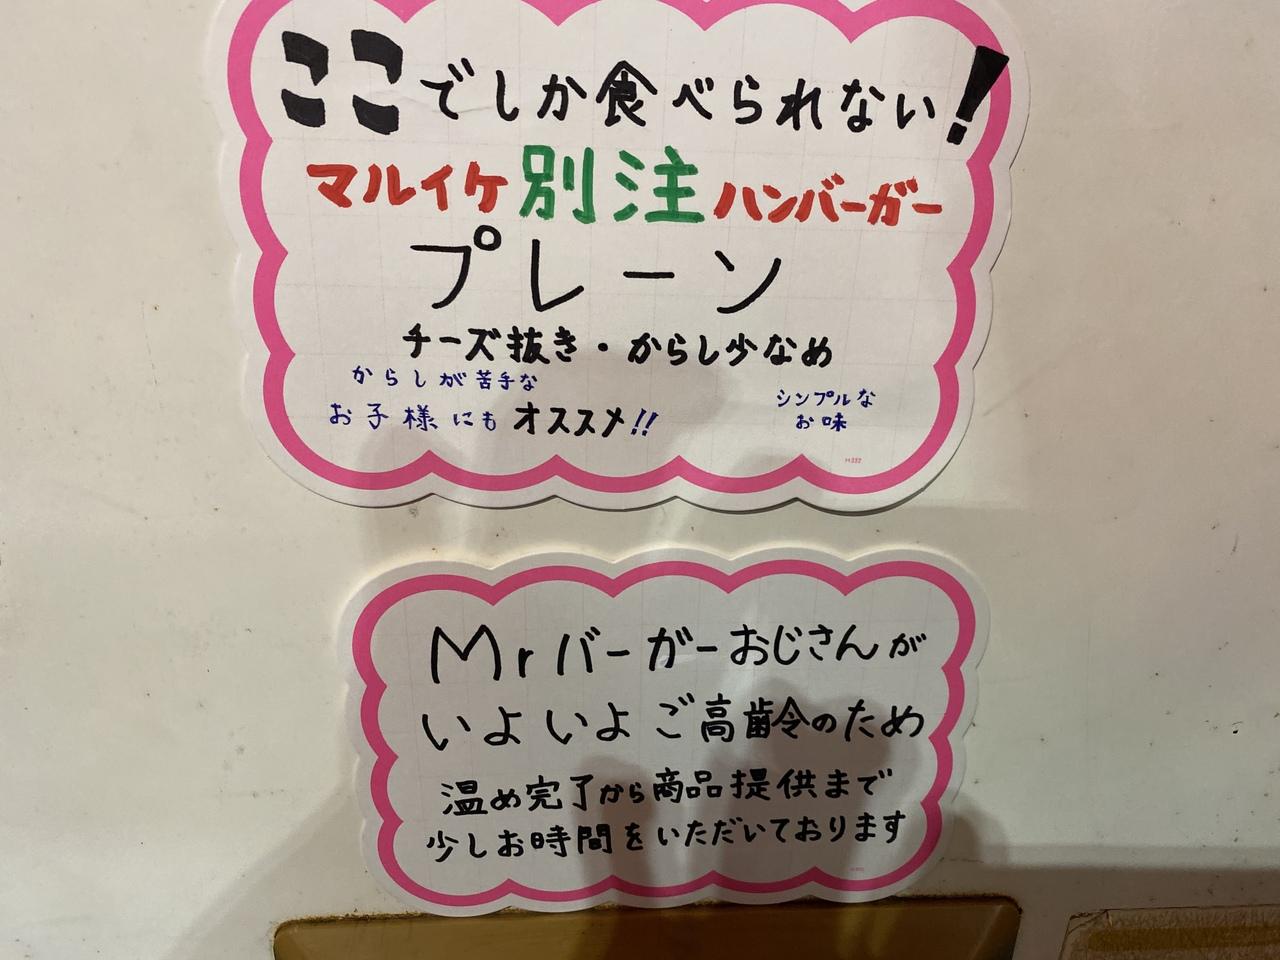 ここでしか食べられない!
マルイケ別注ハンバーガー
プレーン
チーズ抜き・からし少なめ
からしが苦手な
お子様にもオススメ!!
シンプルな
お味
H332
Mrバーガーおじさんが
いよいよご高齢のため
温め完了から商品提供まで
少しお時間をいただいております